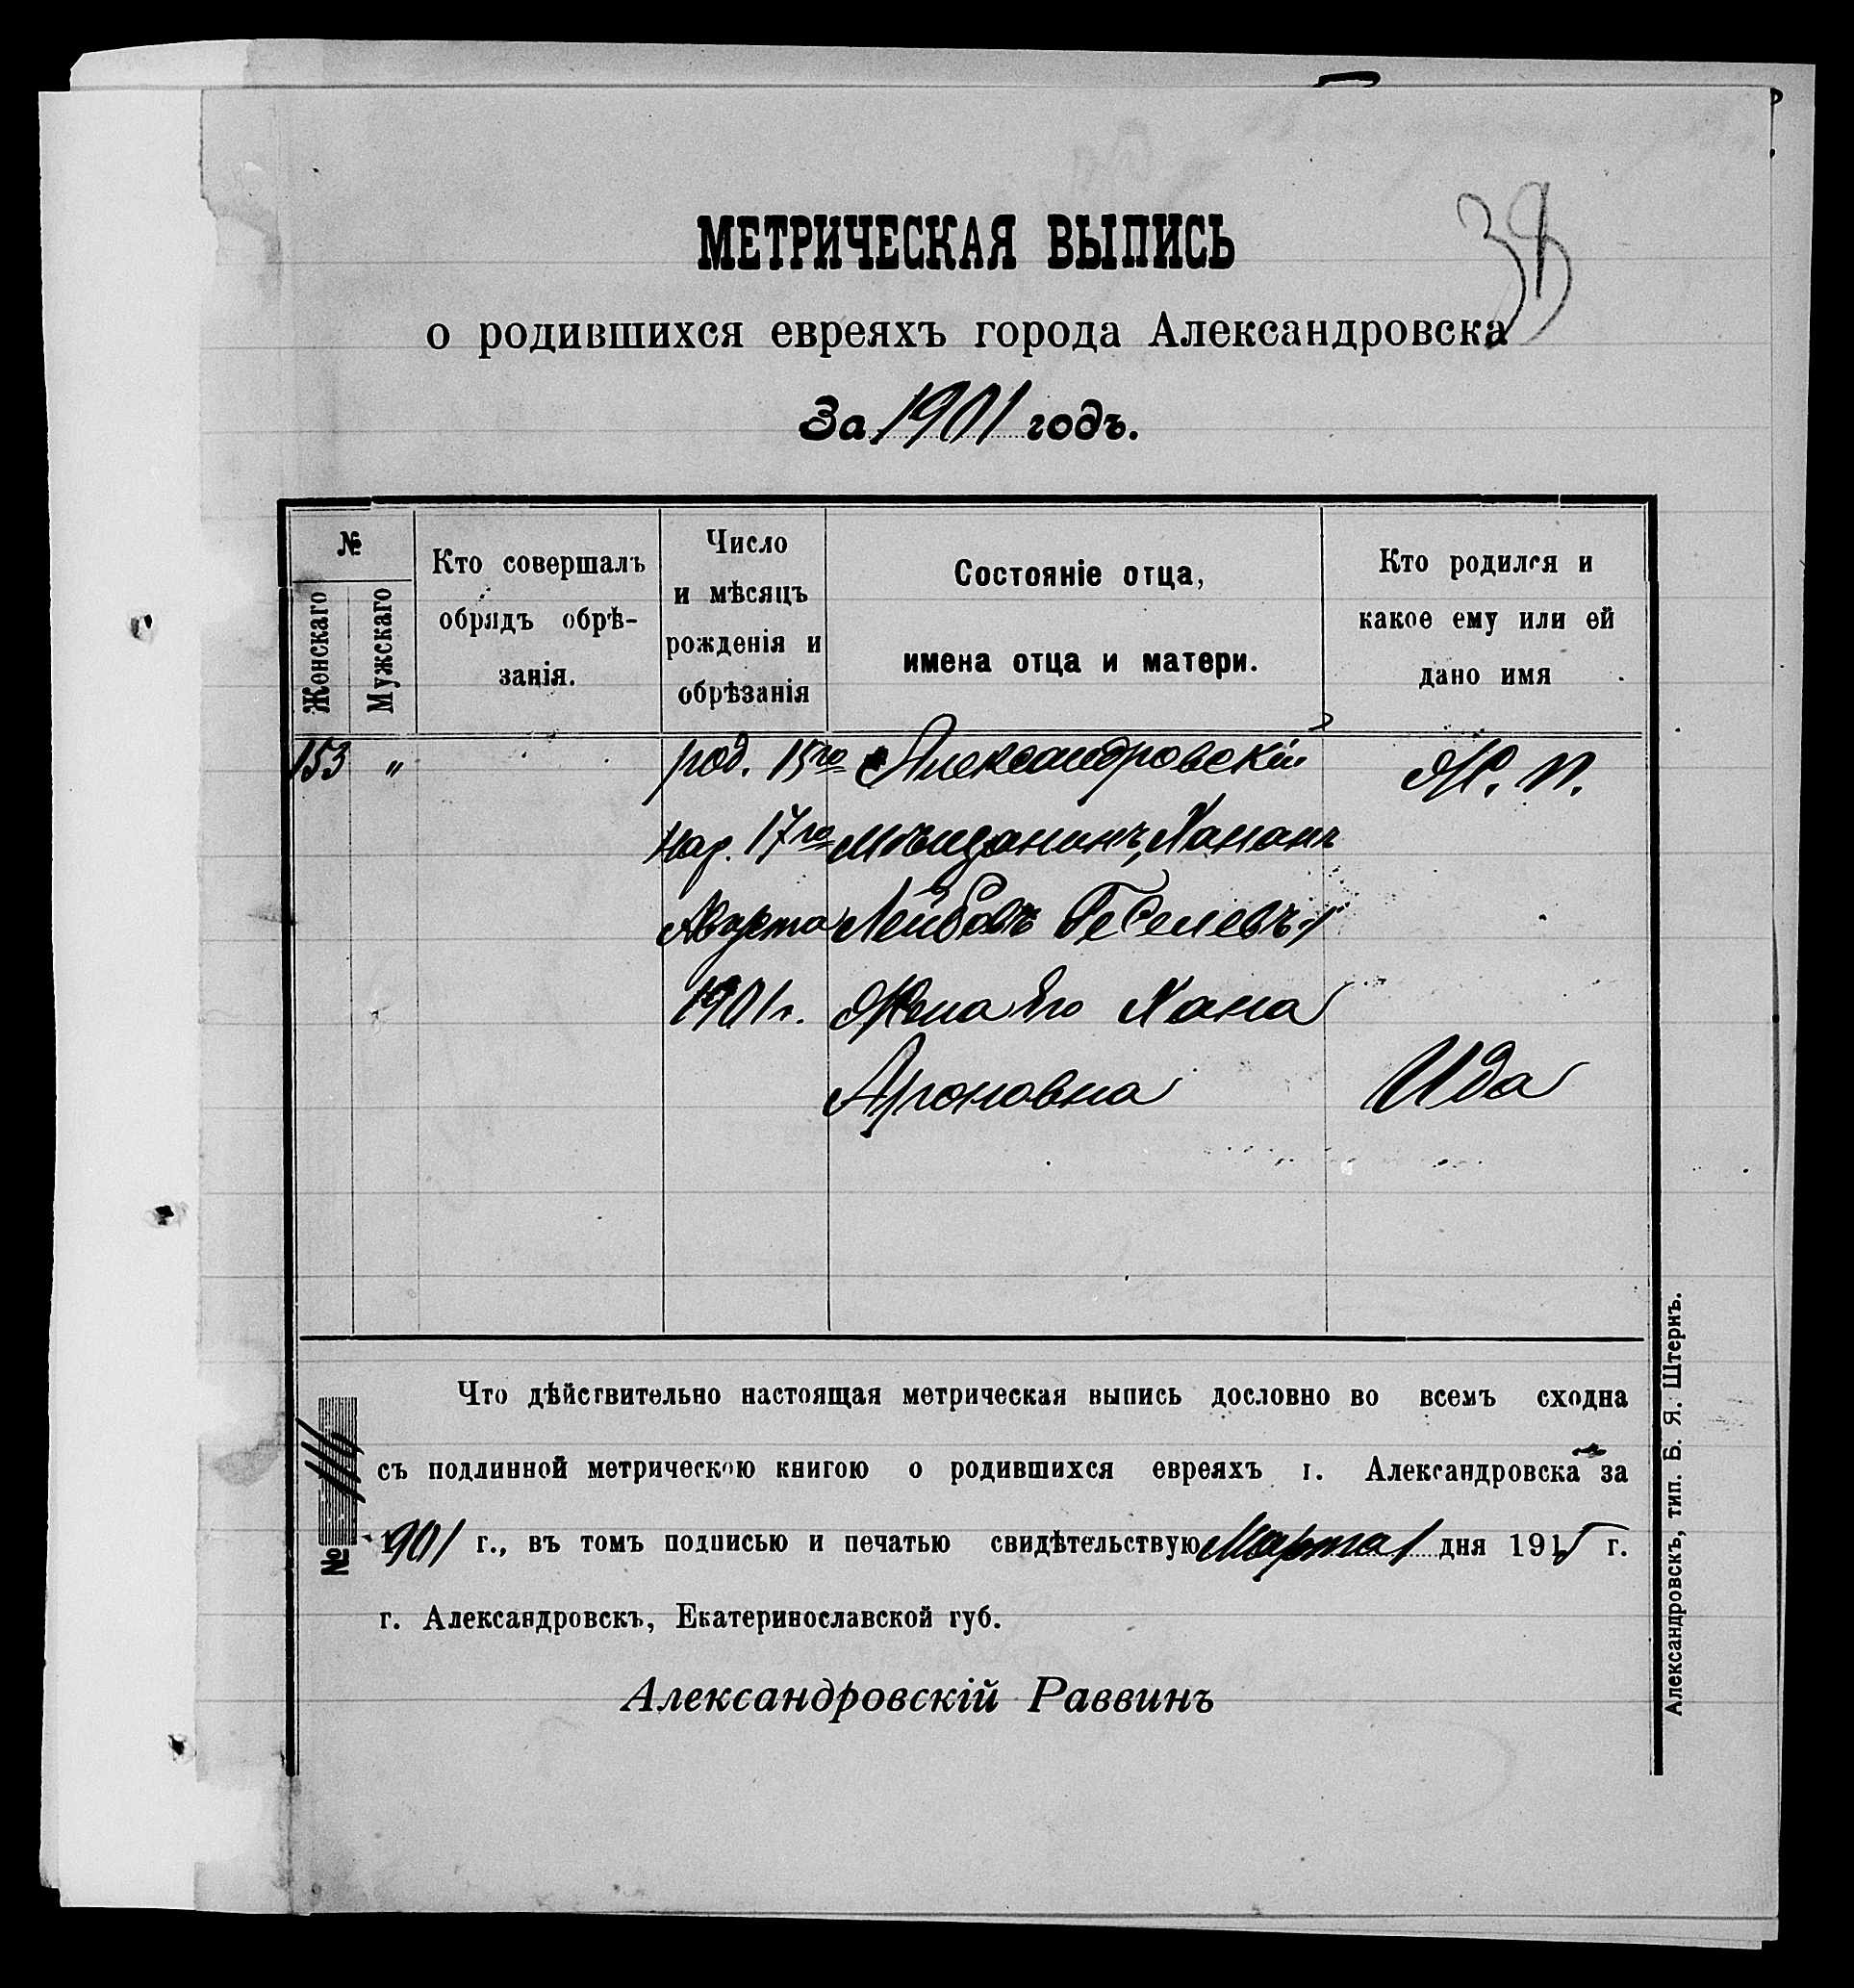 38
МЕТРИЧЕСКАЯ ВЫПИСЬ
о родившихся евреяхъ города Александровска
За 1901 годъ.
№
Женскаго
Мужскаго
Кто совершалъ
обрядъ обрѣ-
занія.
Число
и мѣсяцъ
рожденія и
обрѣзанія
Состояніе отца,
имена отца и матери.
Кто родился и
какое ему или ей
дано имя
153 " род. 15го Александровскій Ж. п.
нар. 17го Мѣщанинъ, Хананъ
Августа Лейбовъ Геселевъ
1901 г. Жена его Хана
Ароновна Ида
Что дѣйствительно настоящая метрическая выпись дословно во всемъ сходна
съ подлинной метрическою книгою о родившихся евреяхъ г. Александровска за
1901 г., въ томъ подписью и печатью свидѣтельствую Марта 1 дня 1915 г.
№ 116
г. Александровскъ, Екатеринославской губ.
Александровскій Раввинъ
Александровскъ, тип. Б. Я. Штернъ.